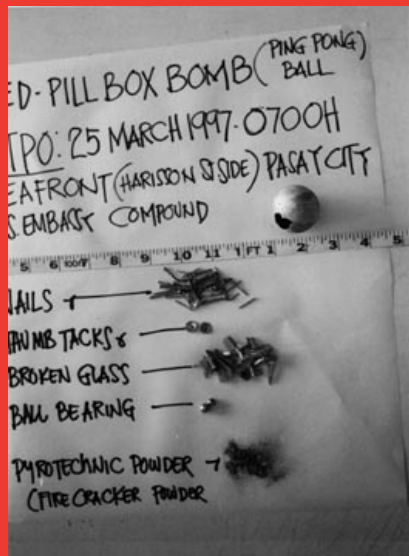 ED-PILL BOX BOMB (PING PONG)
BALL
TPO: 25 MARCH 1997-0700H
EAFRONT (HARISSON ST SIDE) PASAY CITY
S. EMBASSY COMPOUND
5 6 8 9 10 11 1 FT 1 2 3 4 5
NAILS
THUMB TACKS
BROKEN GLASS
BALL BEARING
PYROTECHNIC POWDER
(FIRECRACKER POWDER